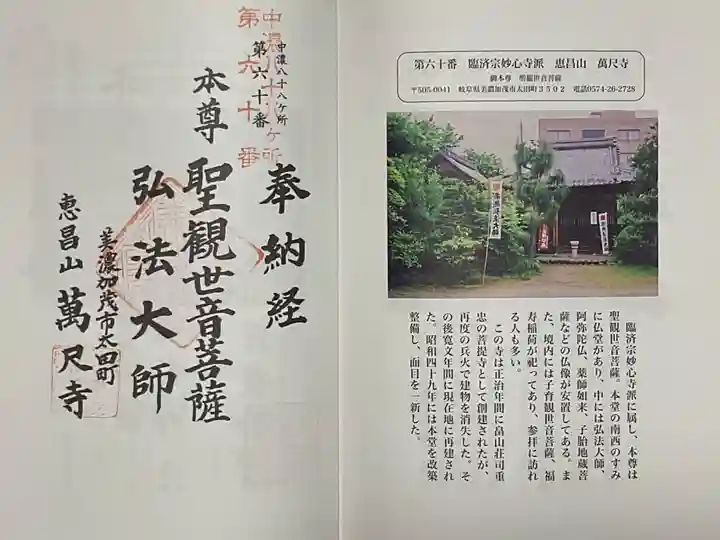 第六十番　臨済宗妙心寺派　恵昌山　萬尺寺
御本尊　聖観世音菩薩
〒505-0041　岐阜県美濃加茂市太田町3502　電話0574-26-2728
臨済宗妙心寺派に属し、本尊は
聖観世音菩薩。本堂の南西のすみ
に仏堂があり、中には弘法大師、
阿弥陀仏、薬師如来、子胎地蔵菩
薩などの仏像が安置してある。ま
た、境内には子育観世音菩薩、福
寿稲荷が祀ってあり、参拝に訪れ
る人も多い。
この寺は正治年間に畠山荘司重
忠の菩提寺として創建されたが、
再度の兵火で建物を消失した。そ
の後寛文年間に現在地に再建され
た。昭和四十九年には本堂を改築
整備し、面目を一新した。
奉納経
中濃八十八ケ所
第六十番
中濃八十八ヶ所
第六十番
本尊
聖観世音菩薩
弘法大師
美濃加茂市太田町
恵昌山 萬尺寺